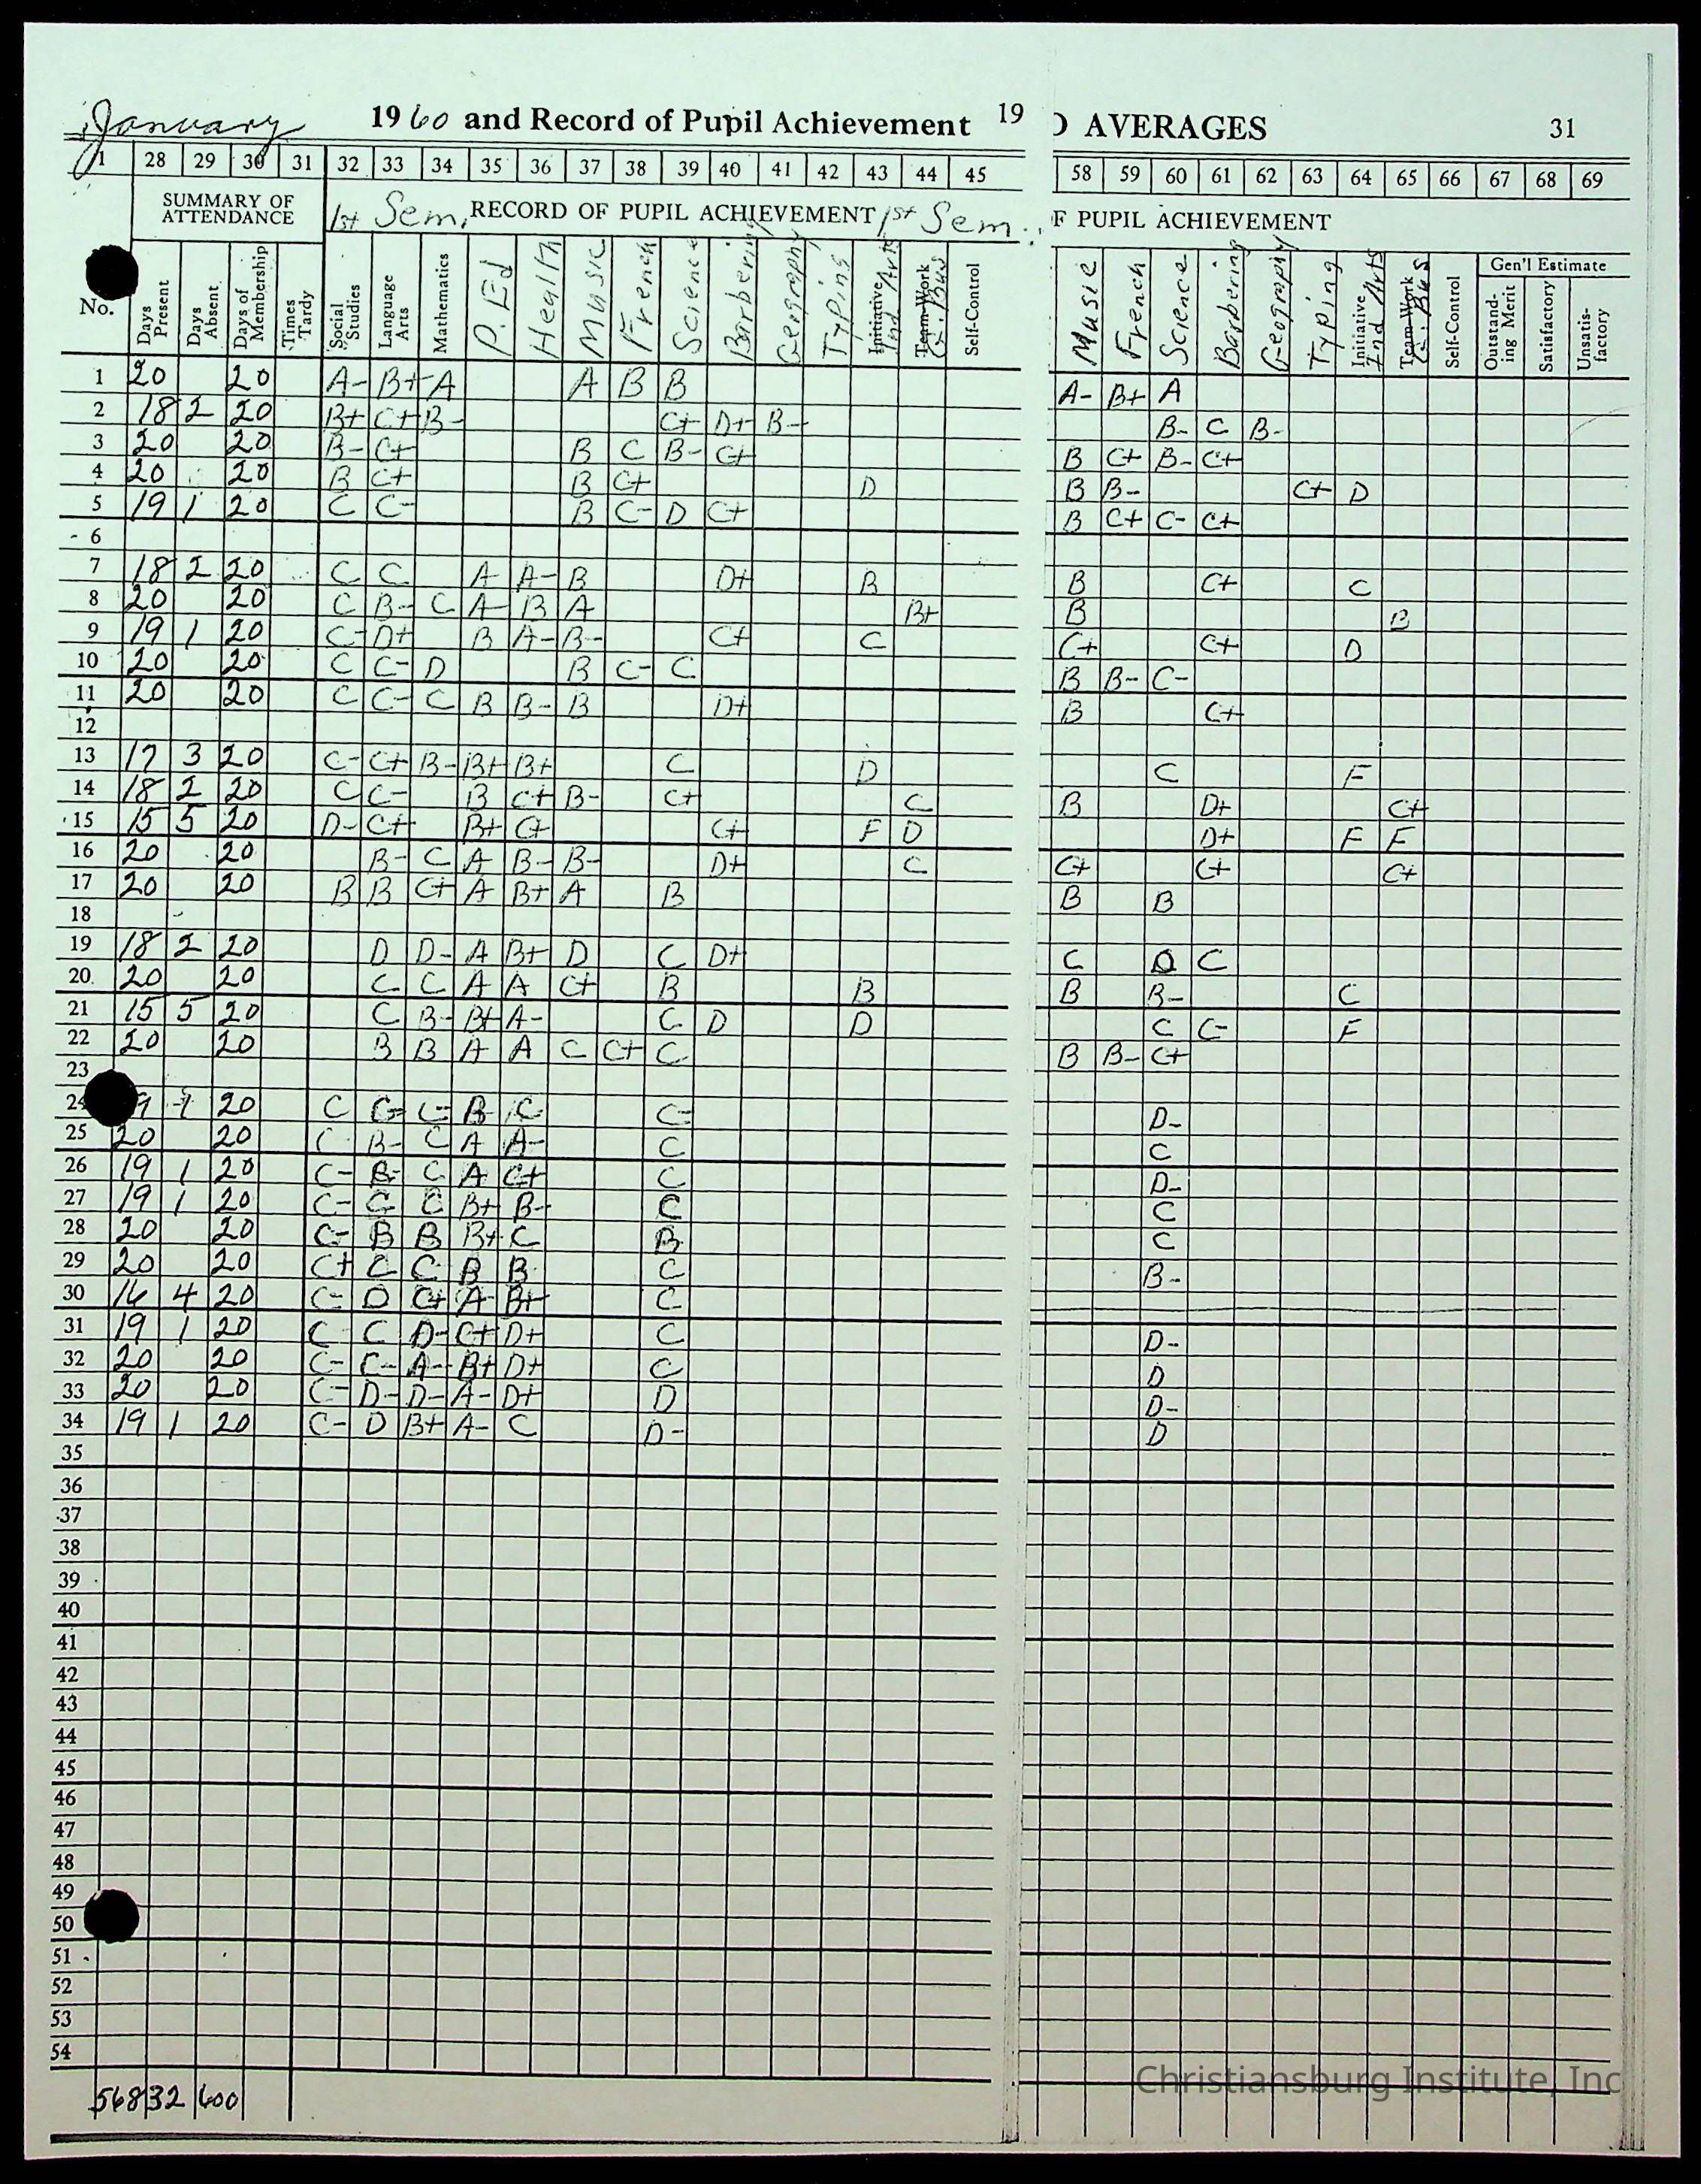 January 1960 and Record of Pupil Achievement 19 D AVERAGES 31
1 28 29 30 31 32 33 34 35 36 37 38 39 40 41 42 43 44 45 58 59 60 61 62 63 64 65 66 67 68 69
SUMMARY OF ATTENDANCE 1st Sem. RECORD OF PUPIL ACHIEVEMENT 1st Sem. F PUPIL ACHIEVEMENT
Gen'l Estimate
No. Days Present Days Absent Days of Membership Times Tardy Social Studies Language Arts Mathematics P. Ed Health Music French Science Barbering Geography Typing Initiative Ind Arts Team-Work G. Bus Self-Control Music French Science Barbering Geography Typing Initiative Ind Arts Team-Work G. Bus Self-Control Outstand-ing Merit Satisfactory Unsatis-factory
1 20 20 A- B+ A A B B A- B+ A
2 18 2 20 B+ C+ B- C+ D+ B- B- C B-
3 20 20 B- C+ B C B- C+ B C+ B- C+
4 20 20 B C+ B C+ D B B- C+ D
5 19 1 20 C C- B C- D C+ B C+ C- C+
6
7 18 2 20 C C A A- B D+ B B C+ C
8 20 20 C B- C A- B A B+ B B
9 19 1 20 C- D+ B A- B- C+ C C+ C+ D
10 20 20 C C- D B C- C B B- C-
11 20 20 C C- C B B- B D+ B C+
12
13 17 3 20 C- C+ B- B+ B+ C D C F
14 18 2 20 C C- B C+ B- C+ C B D+ C+
15 15 5 20 D- C+ B+ C+ C+ F D D+ F F
16 20 20 B- C A B- B- D+ C C+ C+ C+
17 20 20 B B C+ A B+ A B B B
18
19 18 2 20 D D- A B+ D C D+ C D C
20 20 20 C C A A C+ B B B B- C
21 15 5 20 C B- B+ A- C D D C C- F
22 20 20 B B A A C C+ C B B- C+
23
24 9 1 20 C C- C- B- C C- D-
25 20 20 C B- C A A- C C
26 19 1 20 C- B- C A C+ C D-
27 19 1 20 C- C C B+ B- C C
28 20 20 C- B B B+ C B C
29 20 20 C+ C C B B C B-
30 16 4 20 C- D C+ A- B+ C
31 19 1 20 C C D- C+ D+ C D-
32 20 20 C- C- A- B+ D+ C D
33 20 20 C- D- D- A- D+ D D-
34 19 1 20 C- D B+ A- C D- D
35
36
37
38
39
40
41
42
43
44
45
46
47
48
49
50
51
52
53
54
568 32 600
Christiansburg Institute, Inc